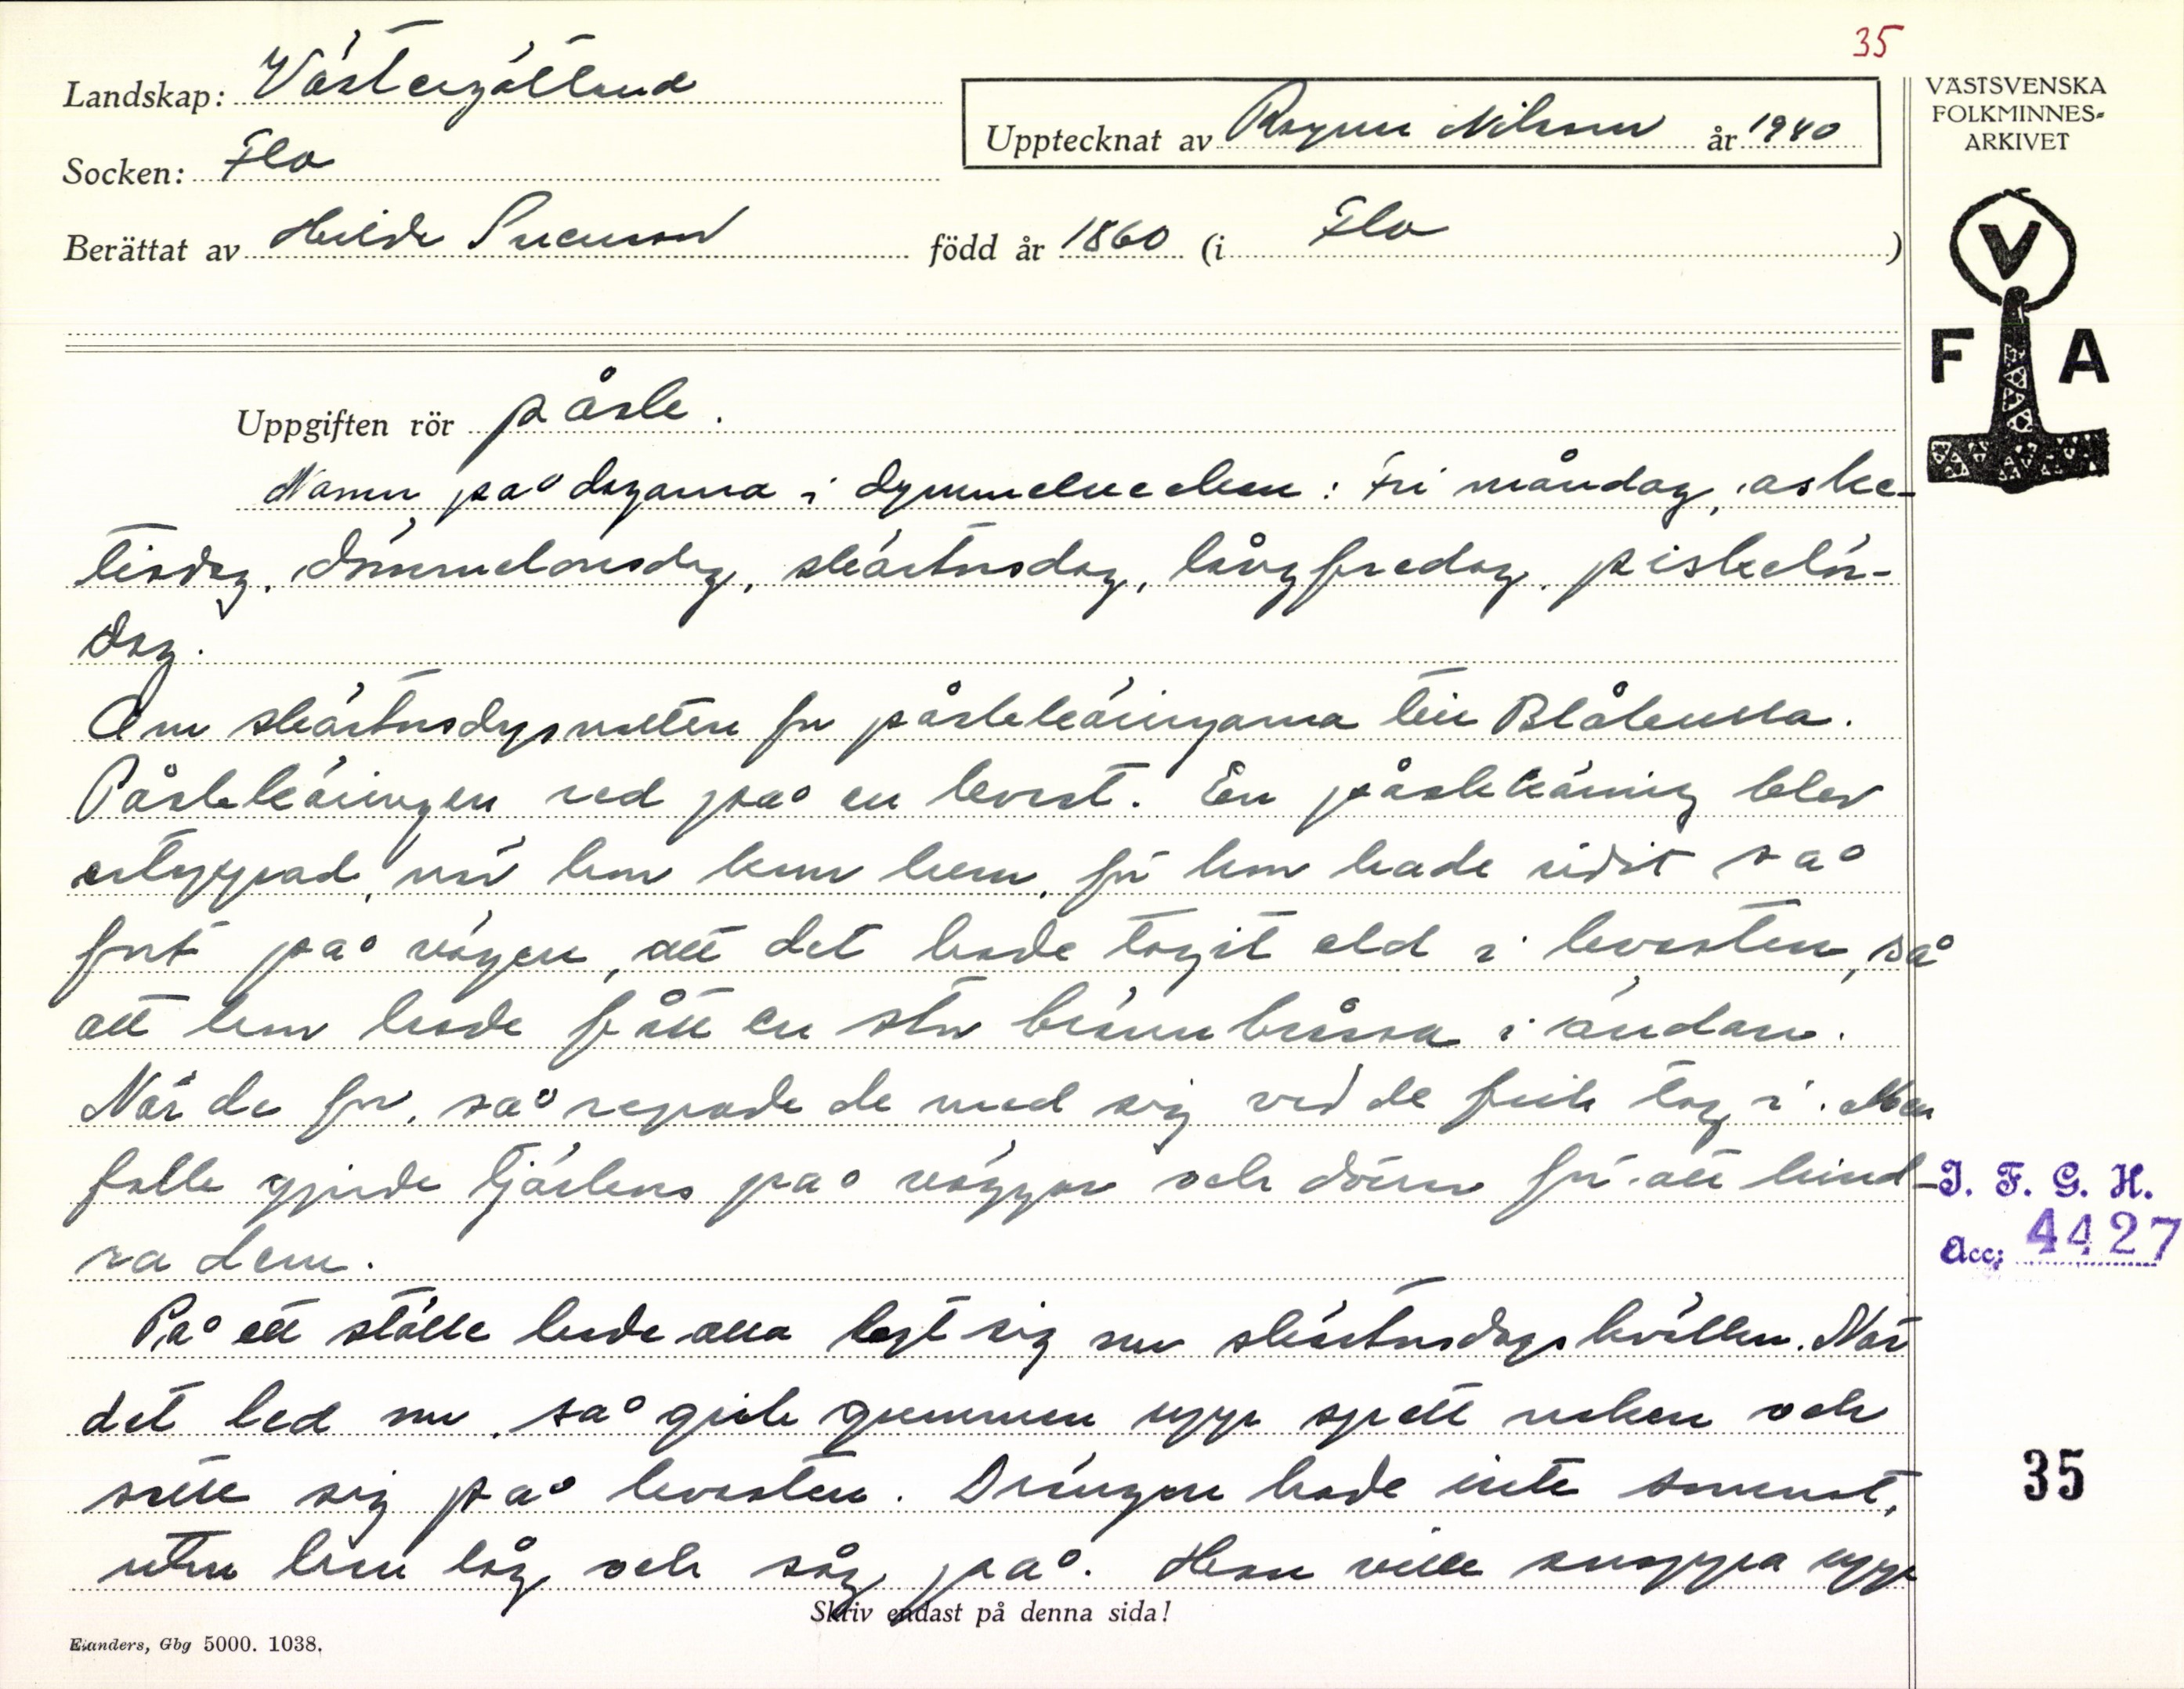 35
Landskap: Västergötland
Upptecknat av Ragnar Nilsson år 1940
VÄSTSVENSKA
FOLKMINNES-
ARKIVET
Socken: Flo
Berättat av Hilda Svenson född år 1860 (i Flo )
V
F A
Uppgiften rör påsk.
Namn på dagarna i dymmelveckan: Fri måndag, aske-
tisdag, dimmelonsdag, skärtorsdag, långfredag, piskelör-
dag.
Om skärtorsdagsnatten for påskkäringarna till Blåkulla.
Påskkäringen red på en kvast. En påskkäring blev
ertappad, när hon kom hem, för hon hade ridit så
fort på vägen, att det hade tagit eld i kvasten, så
att hon hade fått en stor brännblåsa i ändan.
När de for, så rapade de med sig vad de fick tag i. Men
folk gjorde tjärkors på väggar och dörrar för att hind-
ra dem.
På ett ställe hade alla lagt sig om skärtorsdagskvällen. När
det led om, så gick gumman upp spritt naken och
satte sig på kvasten. Drängen hade inte somnat,
utan han låg och såg på. Han ville snappa upp
Skriv endast på denna sida!
J. F. G. H.
Acc: 4427
35
Elanders, Gbg 5000. 1038.